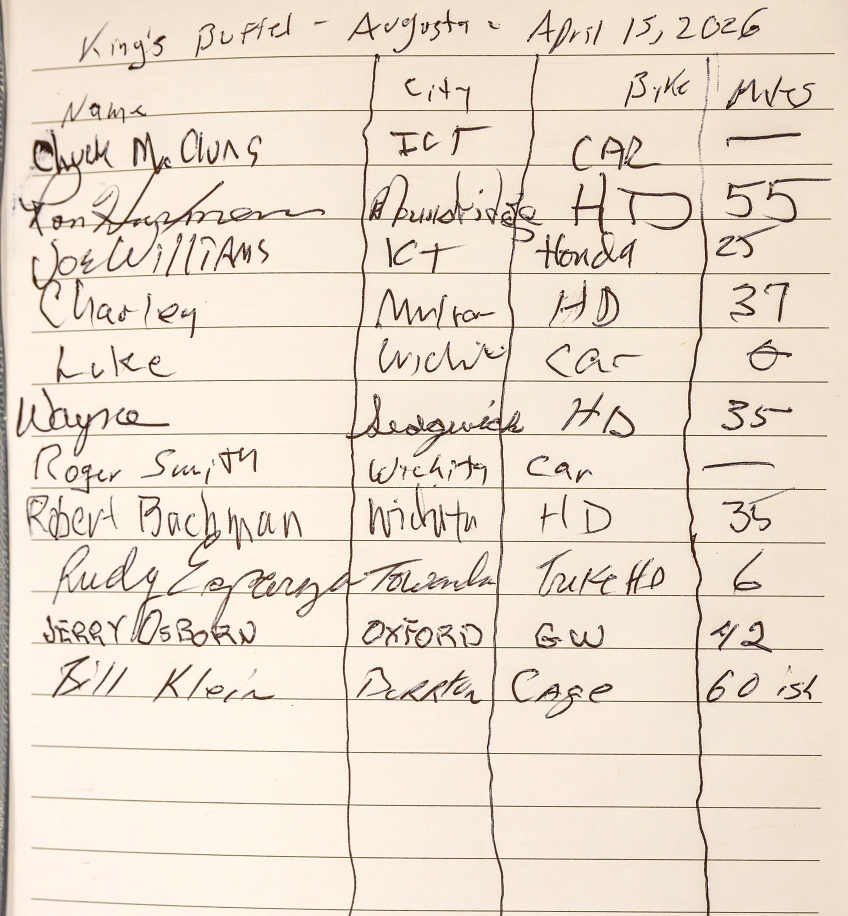 King's Buffet - Augusta - April 15, 2026
Name City Bike Miles
Chuck McClung ICT CAR —
Ron Moundridge HD 55
Joe Williams ICT Honda 25
Charley Mulvane HD 37
Luke Wichita Car 0
Wayne Sedgwick HD 35
Roger Smith Wichita Car —
Robert Bachman Wichita HD 35
Rudy Esparza Towanda Trike HD 6
JERRY OSBORN OXFORD GW 42
Bill Klein Burrton Cage 60 ish